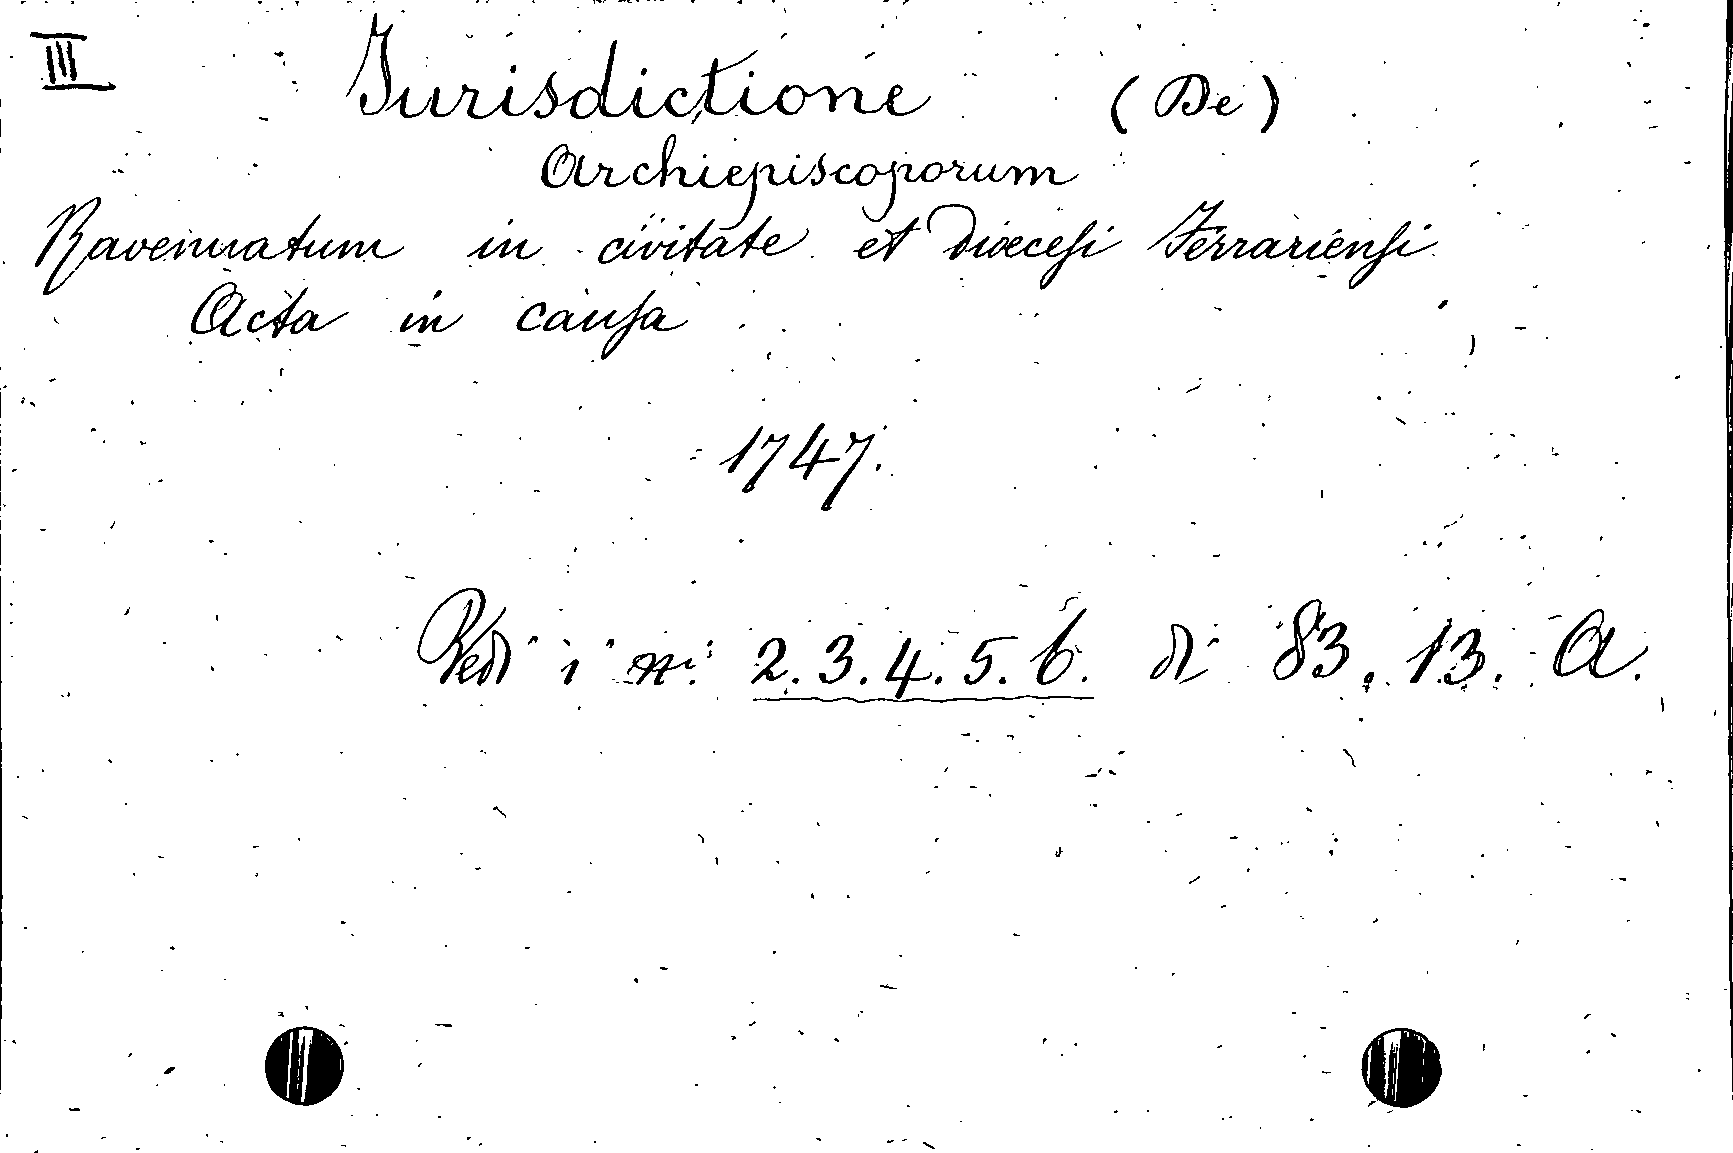 III
Jurisdictione (De)
Archiepiscoporum
Ravennatum in civitate et Diœcesi Ferrariensi
Acta in causa
1747.
Vedi i ni. 2.3.4.5.6. di 83.13.A.